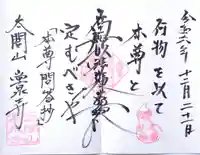 令和六年 十二月二十一日
何物を以て
本尊と
南無妙法蓮華経
定むべきや
本尊問答抄
太開山 常宗寺